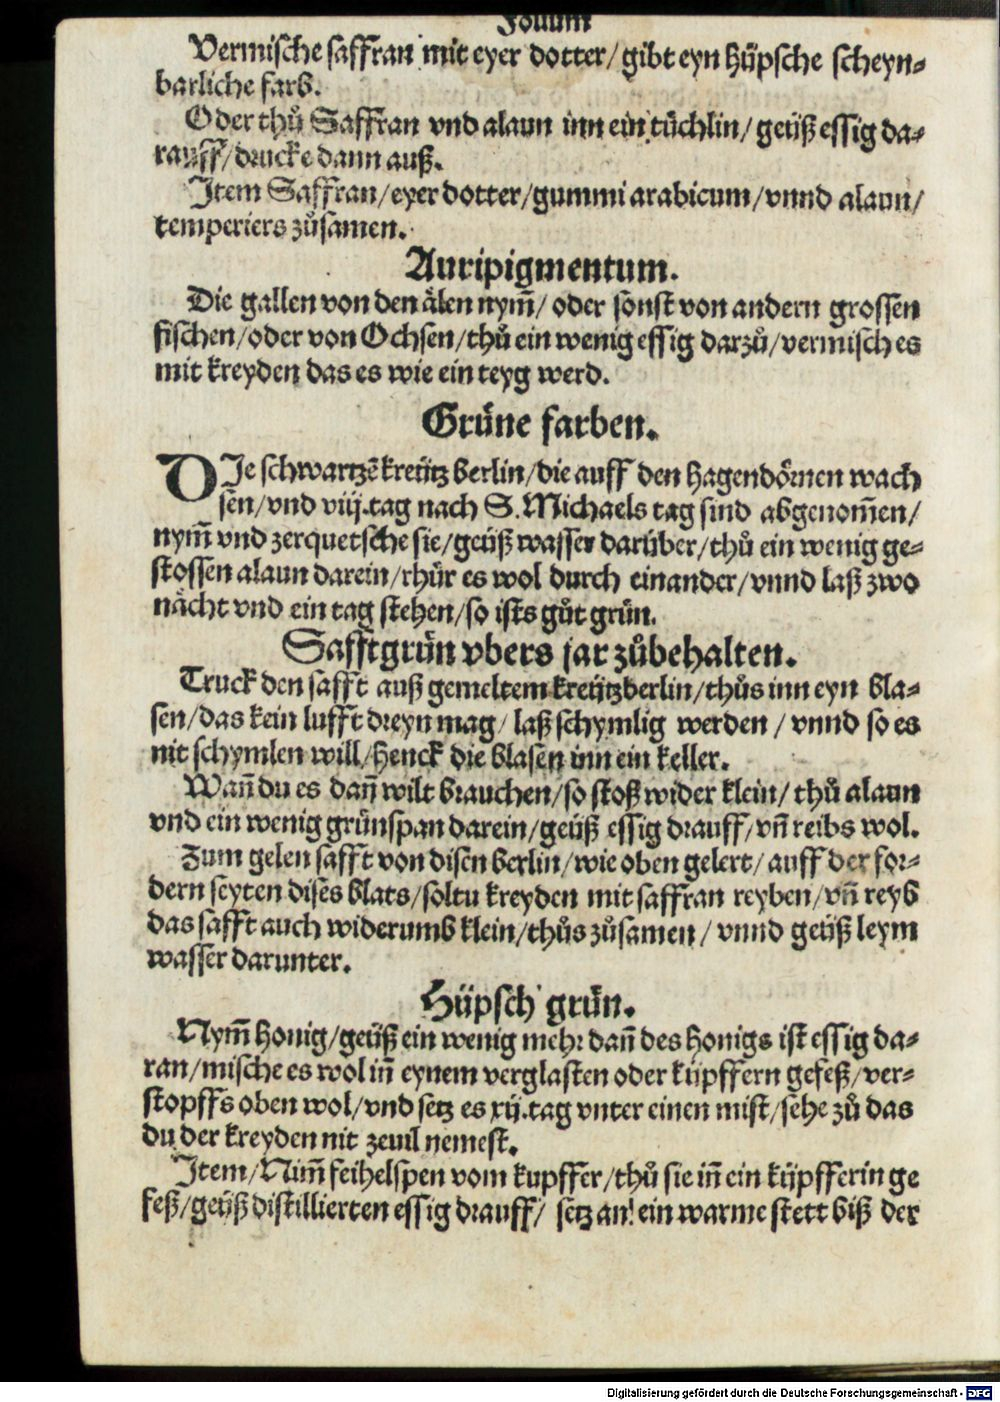 Vermische saffran mit eyer dotter/gibt eyn hüpsche scheyn⸗
barliche farb.
Oder thů Saffran vnd alaun inn ein tüchlin/ geüß essig da⸗
rauff/drucke dann auß.
Item Saffran/eyer dotter/gummi arabicum/vnnd alaun/
temperiers zůsamen.
Auripigmentum.
Die gallen von den älen nym̃/ oder sonst von andern grossen
fischen/oder von Ochsen/thů ein wenig essig darzů/vermisch es
mit kreyden das es wie ein teyg werd.
Grüne farben.
DIe schwartzẽ kreütz berlin/die auff den hagendörnen wach
sen/vnd viij.tag nach S. Michaels tag sind abgenom̃en/
nym̃ vnd zerquetsche sie/geüß wasser darüber/thů ein wenig ge⸗
stossen alaun darein/rhür es wol durch einander/vnnd laß zwo
nächt vnd ein tag stehen/so ists gůt grün.
Safftgrün vbers jar zůbehalten.
Truck den safft auß gemeltem kreützberlin/thůs inn eyn bla⸗
sen/das kein lufft dreyn mag/ laß schymlig werden / vnnd so es
nit schymlen will/henck die blasen inn ein keller.
Wañ du es dañ wilt brauchen/so stoß wider klein/ thů alaun
vnd ein wenig grünspan darein/geüß essig drauff/vñ reibs wol.
Zum gelen safft von disen berlin/wie oben gelert/ auff der for⸗
dern seyten dises blats/soltu kreyden mit saffran reyben/vñ reyb
das safft auch widerumb klein/thůs zůsamen/ vnnd geüß leym
wasser darunter.
Hüpsch grün.
Nym̃ honig/geüß ein wenig mehr dañ des honigs ist essig da⸗
ran/mische es wol iñ eynem verglasten oder küpffern gefeß/ver⸗
stopffs oben wol/vnd setz es xij.tag vnter einen mist/sehe zů das
du der kreyden nit zeuil nemest.
Item/Nim̃ feihelspen vom kupffer/thů sie iñ ein küpfferin ge
feß/geüß distillierten essig drauff/ setz an ein warme stett biß der
Digitalisierung gefördert durch die Deutsche Forschungsgemeinschaft - DFG